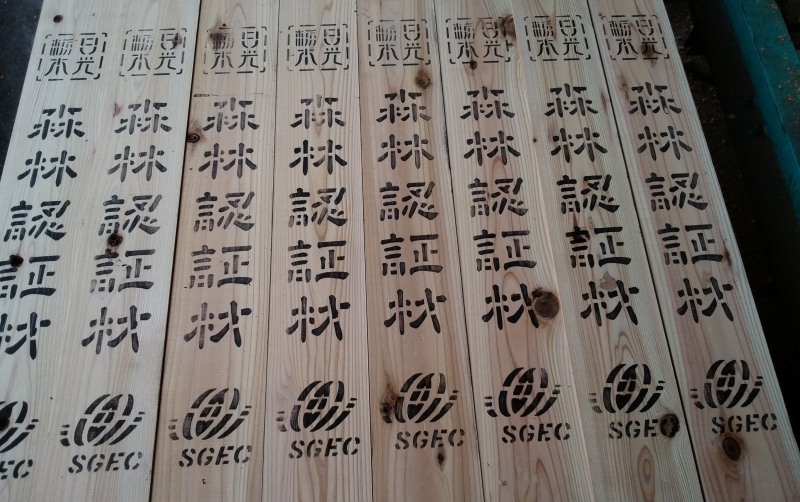 日光
栃木
森林認証材
GEC
日光
栃木
森林認証材
SGEC
日光
栃木
森林認証材
SGEC
日光
栃木
森林認証材
SGEC
日光
栃木
森林認証材
SGEC
日光
栃木
森林認証材
SGEC
日光
栃木
森林認証材
SGEC
日光
栃木
森林認証材
SGEC